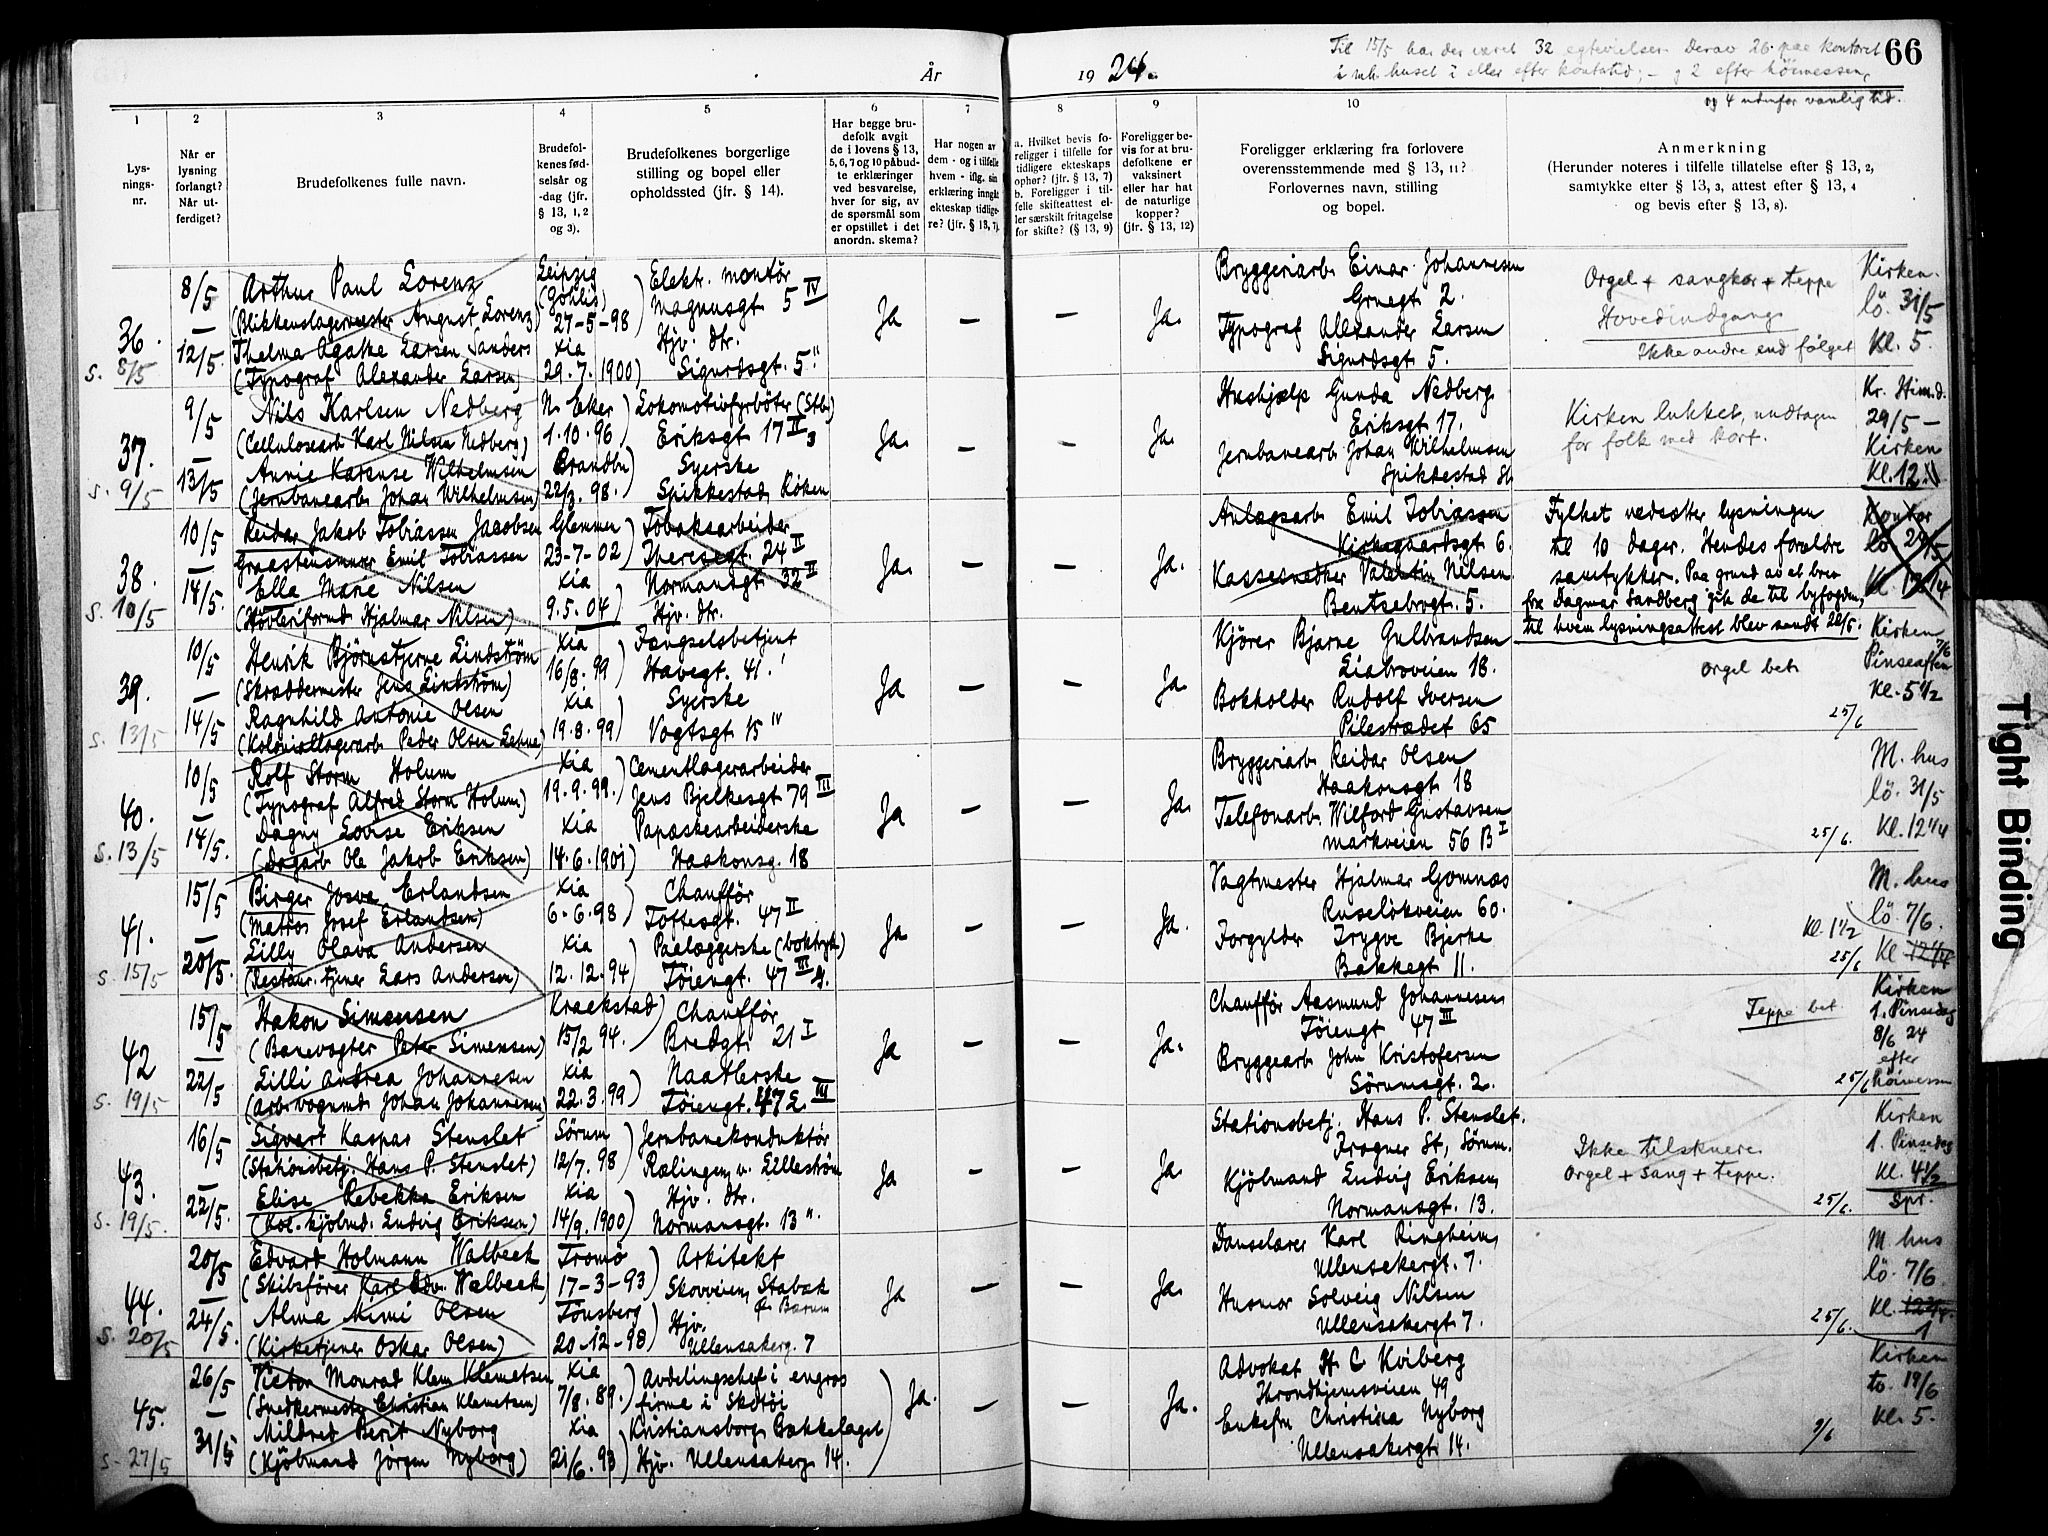 År 1924.
Til 15/5 har der været 32 egtevielser. Derav 26 paa kontoret
i mh. huset i eller efter kontortid; - og 2 efter höimessen,
og 4 utenfor vanlig tid.
66
1 2 3 4 5 6 7 8 9 10
Lysningsnr.
Når er lysning forlangt? Når utferdiget?
Brudefolkenes fulle navn.
Brudefolkenes fødselsår og -dag (jfr. § 13, 1, 2 og 3).
Brudefolkenes borgerlige stilling og bopel eller opholdssted (jfr. § 14).
Har begge brudefolk avgit de i lovens § 13, 5, 6, 7 og 10 påbudte erklæringer ved besvarelse, hver for sig, av de spørsmål som er opstillet i det anordn. skema?
Har nogen av dem - og i tilfelle hvem - iflg. sin erklæring inngått ekteskap tidligere? (jfr. § 13, 7).
a. Hvilket bevis foreligger i tilfelle for tidligere ekteskaps ophør? (jfr. § 13, 7)
b. Foreligger i tilfelle skifteattest eller særskilt fritagelse for skifte? (§ 13, 9)
Foreligger bevis for at brudefolkene er vaksinert eller har hat de naturlige kopper? (jfr. § 13, 12)
Foreligger erklæring fra forlovere overensstemmende med § 13, 11? Forlovernes navn, stilling og bopel.
Anmerkning
(Herunder noteres i tilfelle tillatelse efter § 13, 2, samtykke efter § 13, 3, attest efter § 13, 4 og bevis efter § 13, 8).
36.
s. 8/5
8/5 — 12/5
Arthur Paul Lorenz
(Blikkenslagermester August Lorenz)
Thelma Agathe Larsen Sanders
(Typograf Alexander Larsen)
Leipzig
(Gohlis)
27-5-98
Kia
29.7.1900
Elektr. montör
Magnusgt. 5 IV
Hjv. dtr.
Sigurdsgt. 5 "
Ja — — Ja.
Bryggeriarb. Einar Johannesen
Gruegt. 2.
Typograf Alexander Larsen
Sigurdsgt. 5.
Orgel + sangkor + teppe
Hovedindgang
Ikke andre end følget
Kirken.
lö. 31/5
Kl. 5.
37.
s. 9/5
9/5 — 13/5
Nils Karlsen Nedberg
(Cellulosearb. Karl Nilsen Nedberg)
Annie Karense Wilhelmsen
(Jernbanearb. Johan Wilhelmsen)
N. Eker
1.10.96
Brandbu
22/3.98.
Lokomotivfyrböter (Stb)
Eriksgt. 17 II 3
Syerske
Spikkestad, Röken
Ja. — — Ja.
Hushjælp Gunda Nedberg
Eriksgt. 17.
Jernbanearb. Johan Wilhelmsen
Spikkestad St.
Kirken lukket, undtagen
for folk med kort.
Kr. Himd.
29/5 —
Kirken
Kl. 12.
38.
s. 10/5
10/5 — 14/5.
Reidar Jakob Tobiassen Jacobsen
Graastensmurer Emil Tobiassen
Ella Marie Nilsen
(Hövleriformd. Hjalmar Nilsen)
Glemmen
23-7-02
Kia
9.5.04
Tobaksarbeider
Theresegt. 24 II
Normansgt. 32 II
Hjv. dtr.
Ja. — — Ja.
Anlægsarb. Emil Tobiassen
Kirkegaardsgt. 6.
Kassesnedker Valentin Nilsen
Bentsebrogt. 5.
Fylket nedsætter lysningen
til 10 dager. Hendes forældre
samtykker. Paa grund av et brev
fra Dagmar Sandberg gik de til byfogden,
til hvem lysningsattest blev sendt 22/5.
Kontor
lö 24/5
Kl. 12 1/4
39.
s. 13/5
10/5 — 14/5
Henrik Bjørnstjerne Lindström
(Skræddermester Jens Lindström)
Ragnhild Antonie Olsen
(Koloniallagerarb. Peder Olsen Lehne)
Kia
16/8.99
Kia
19.8.99
Fængselsbetjent
Havegt. 41.
Syerske
Vogtsgt. 15 IV
Ja — — Ja.
Kjörer Bjarne Gulbrandsen
Liabroveien 18.
Bokholder Rudolf Iversen
Pilestrædet 65
orgel bet.
25/6
Kirken
7/6
Pinseaften
Kl. 5 1/2
40.
s. 13/5
10/5 — 14/5.
Rolf Storm Holum
(Typograf Alfred Storm Holum)
Dagny Lovise Eriksen
(Dagarb. Ole Jakob Eriksen)
Kia
19.9.99.
Kia
14.6.1901
Cementlagerarbeider
Jens Bjelkesgt. 79 III
Papæskearbeiderske
Haakonsg. 18
Ja — — Ja.
Bryggeriarb. Reidar Olsen
Haakonsgt 18
Telefonarb. Wilford Gustavsen
Markveien 56 B I
25/6.
M. hus
lö. 31/5
Kl. 12 1/4
41.
s. 15/5
15/5 — 20/5.
Birger Josva Erlandsen
(Matros Josef Erlandsen)
Lilly Olava Andersen
(Restaur. tjener Lars Andersen)
Kia
6-6-98
Kia
12.12.94
Chaufför
Toftesgt. 47 II
Paalæggerske (boktryk)
Töiengt. 47 III 4.
Ja — — Ja.
Vagtmester Hjalmar Gomnæs
Ruselökveien 60.
Forgylder Trygve Bjerke
Bakkegt 11.
Kl. 1 1/2
25/6
M. hus
lö. 7/6.
Kl 12 1/4
42
s. 19/5
15/5 — 22/5
Hakon Simensen
(Banevogter Peter Simensen)
Lilli Andrea Johannesen
(Arb.vognmd. Johan Johannesen)
Kraakstad
15/2 94.
Kia
22.3.99
Chaufför
Bredgt. 21 I
Naatlerske
Töiengt. 47 2 III
Ja — — Ja.
Chaufför Aasmund Johannesen
Töiengt 47 III
Bryggearb. John Kristofersen
Sörumsgt. 2.
Teppe bet
25/6
Kirken
1. Pinsedag
8/6 24
efter
höimessen
43.
s. 19/5.
16/5 — 22/5.
Sigvart Kaspar Stenslet
(Stationsbetj. Hans P. Stenslet)
Elise Rebekka Eriksen
(Kol.kjöbmd. Ludvig Eriksen)
Sörum
12/7.98
Kia
14/9.1900
Jernbanekonduktör
Rælingen v. Lilleström
Hjv. dtr.
Normansgt. 13 ".
Ja — — Ja.
Stationsbetj. Hans P. Stenslet.
Frogner St, Sörum.
Kjöbmand Ludvig Eriksen,
Normansgt. 13.
Ikke tilskuere
Orgel + sang + teppe.
25/6.
Kirken
1. Pinsedag
Kl. 4 1/2
Spr.
44.
s. 20/5
20/5 — 24/5.
Edvard Holmann Walbeck
(Skibsförer Karl Edv. Walbeck)
Alma Mimi Olsen
(Kirketjener Oskar Olsen)
Tromö
17-3-93
Tönsberg
20-12-98
Arkitekt
Skovveien, Stabæk
Ö. Bærum
Hjv.
Ullensakerg. 7
Ja — — Ja.
Danselærer Karl Ringheim,
Ullensakergt. 7.
Husmor Solveig Nilsen
Ullensakergt 7.
25/6.
M. hus
lö. 7/6.
Kl. 12 3/4
1
45.
s. 27/5
26/5 — 31/5
Victor Monrad Klem Klemetsen
(Snedkermester Christian Klemetsen)
Mildred Berit Nyborg
(Kjöbmand Jörgen Nyborg)
Kia
7/8.89.
Kia
21/6.93
Avdelingschef i engros
firma i Skotöi
Kristiansborg, Bækkelaget
Hjv. Ullensakerg. 14.
Ja. — — Ja.
Advokat H. C Kviberg
Throndhjemsveien 49
Enkefru Christina Nyborg
Ullensakergt. 14.
9/6
Kirken
to. 19/6
Kl. 5.
Tight Binding